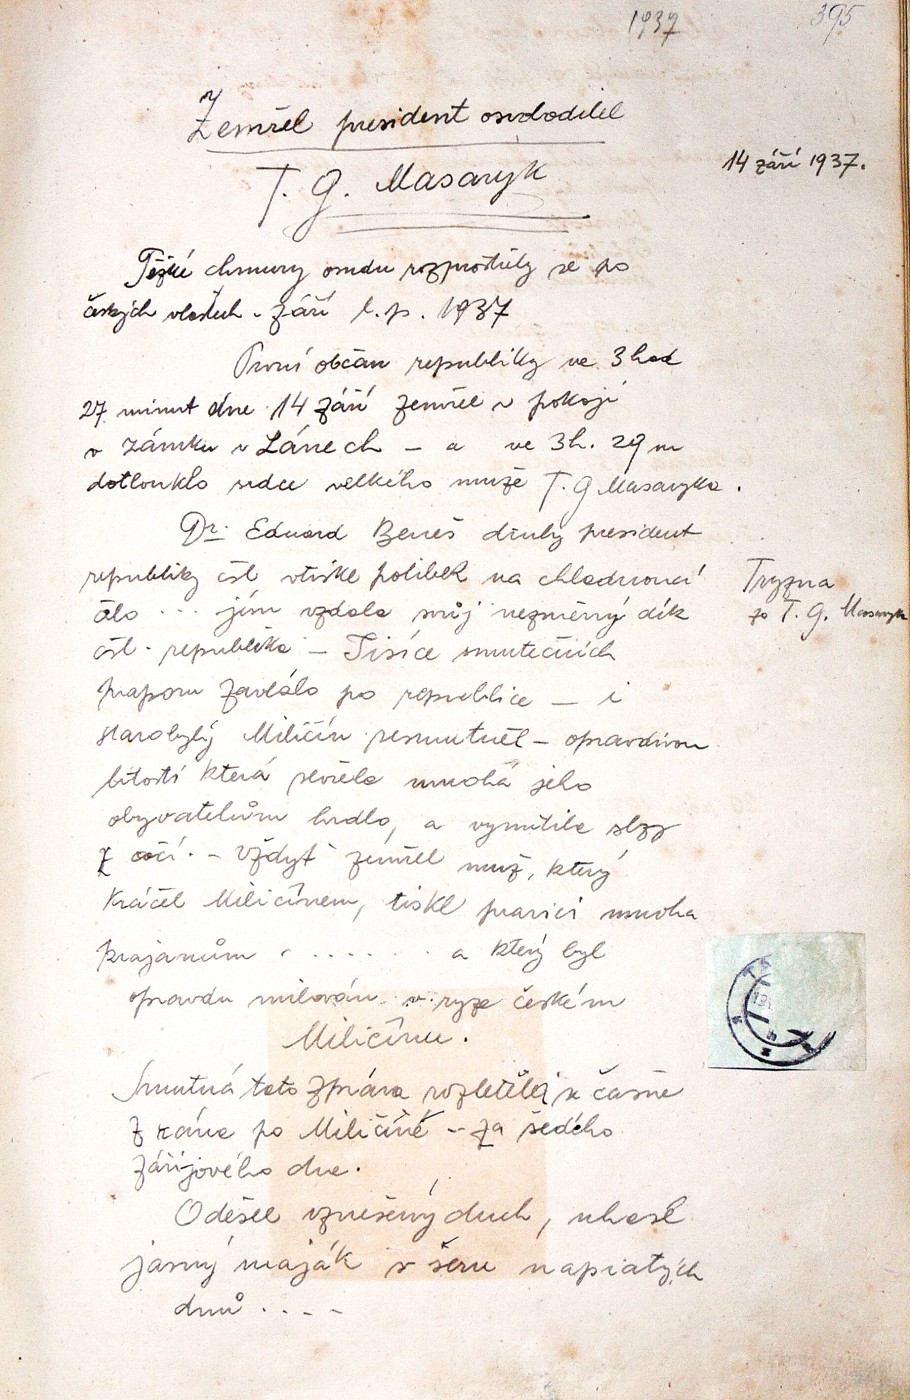 1937
395
Zemřel president osvoboditel
T. G. Masaryk
14 září 1937.
Těžké chmury osudu rozprostřely se po
českých vlastech - září l.p. 1937
První občan republiky ve 3 hod
27 minut dne 14 září zemřel v pokoji
v zámku v Lánech - a ve 3h. 29 m
dotlouklo srdce velkého muže T. G Masaryka.
Dr. Eduard Beneš druhý president
republiky čsl vtiskl polibek na chladnoucí
čelo ... jím vzdala svůj nezměrný dík
čsl. republika - Tisíce smutečních
praporů zavlálo po republice - i
starobylý Miličín posmutněl - opravdivou
lítostí která sevřela mnohá jeho
obyvatelům hrdlo, a vynutila slzy
z očí. - Vždyť zemřel muž, který
kráčel Miličínem, tiskl pravici mnoha
krajanům - ...... a který byl
opravdu milován v ryze českém
Miličínu.
Tryzna
za T. G. Masaryka
Smutná tato zpráva rozletěla se časně
z rána po Miličíně - za šedého
zářijového dne.
Odešel vznešený duch, uhasl
jasný maják v šeru napiatých
dnů . . - -